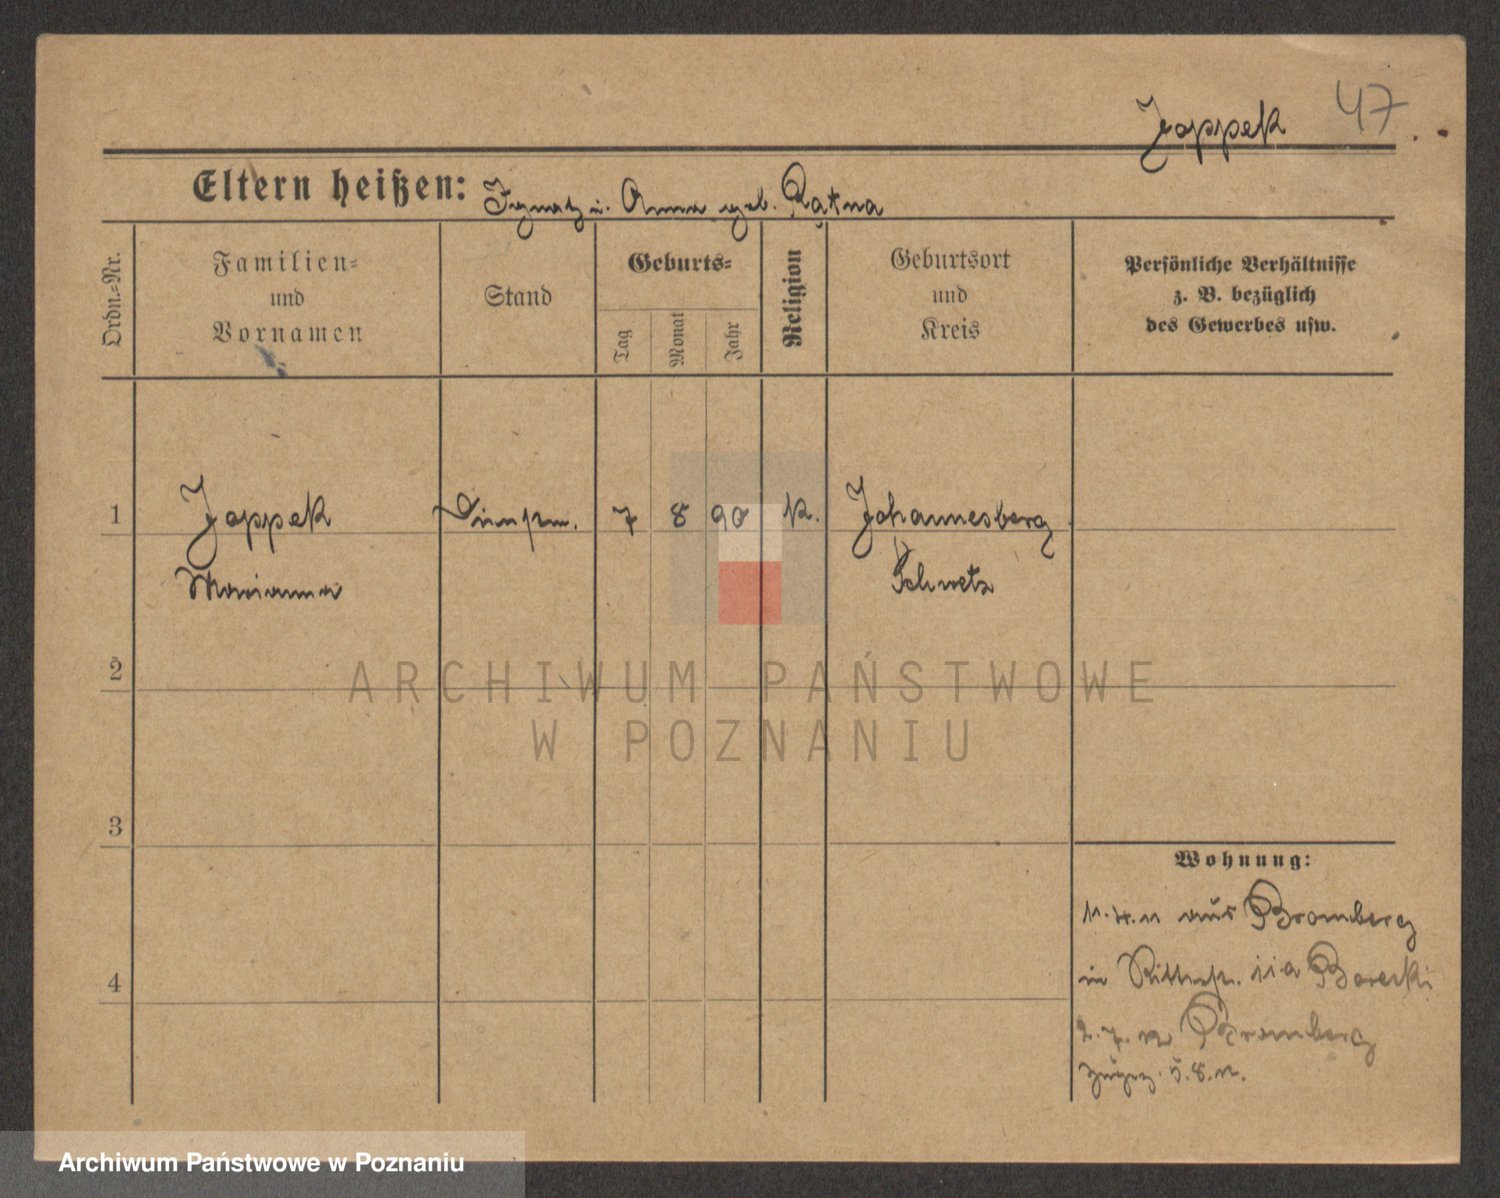 Joppek 47
Eltern heißen: Ignatz u. Anna geb.
Ordn.=Nr.
Familien=
und
Vornamen
Stand
Geburts=
Tag
Monat
Jahr
Religion
Geburtsort
und
Kreis
Persönliche Verhältnisse
z. B. bezüglich
des Gewerbes usw.
1 Joppek 7 8 90 k. Johannesberg
Marianna Schwetz
2
ARCHIWUM PAŃSTWOWE
W POZNANIU
3
Wohnung:
aus Bromberg
in Ritterstr. 11a Borecki
2.7. Bromberg
4
Archiwum Państwowe w Poznaniu